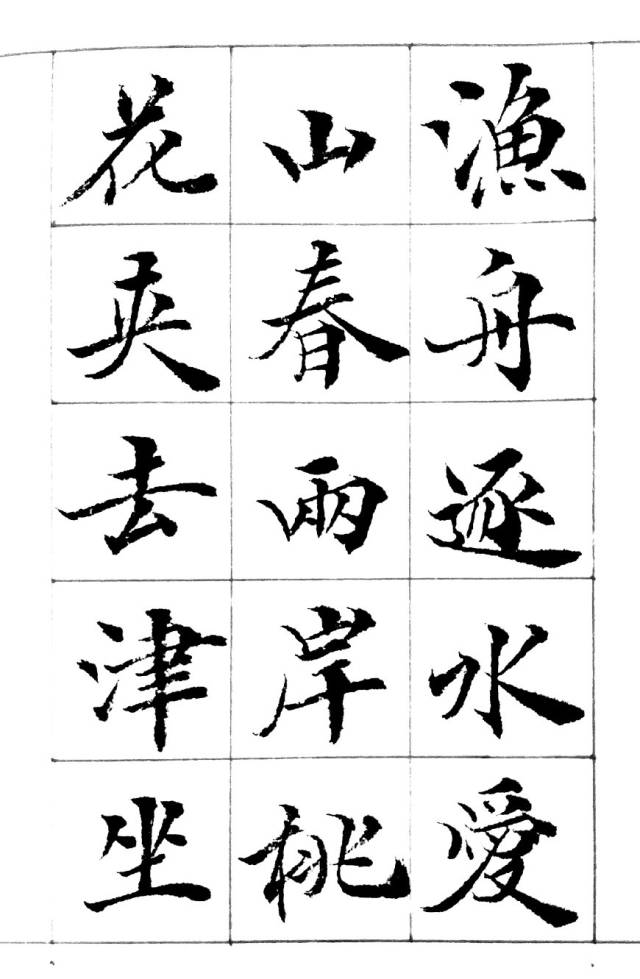 漁舟逐水愛
山春兩岸桃
花夾去津坐